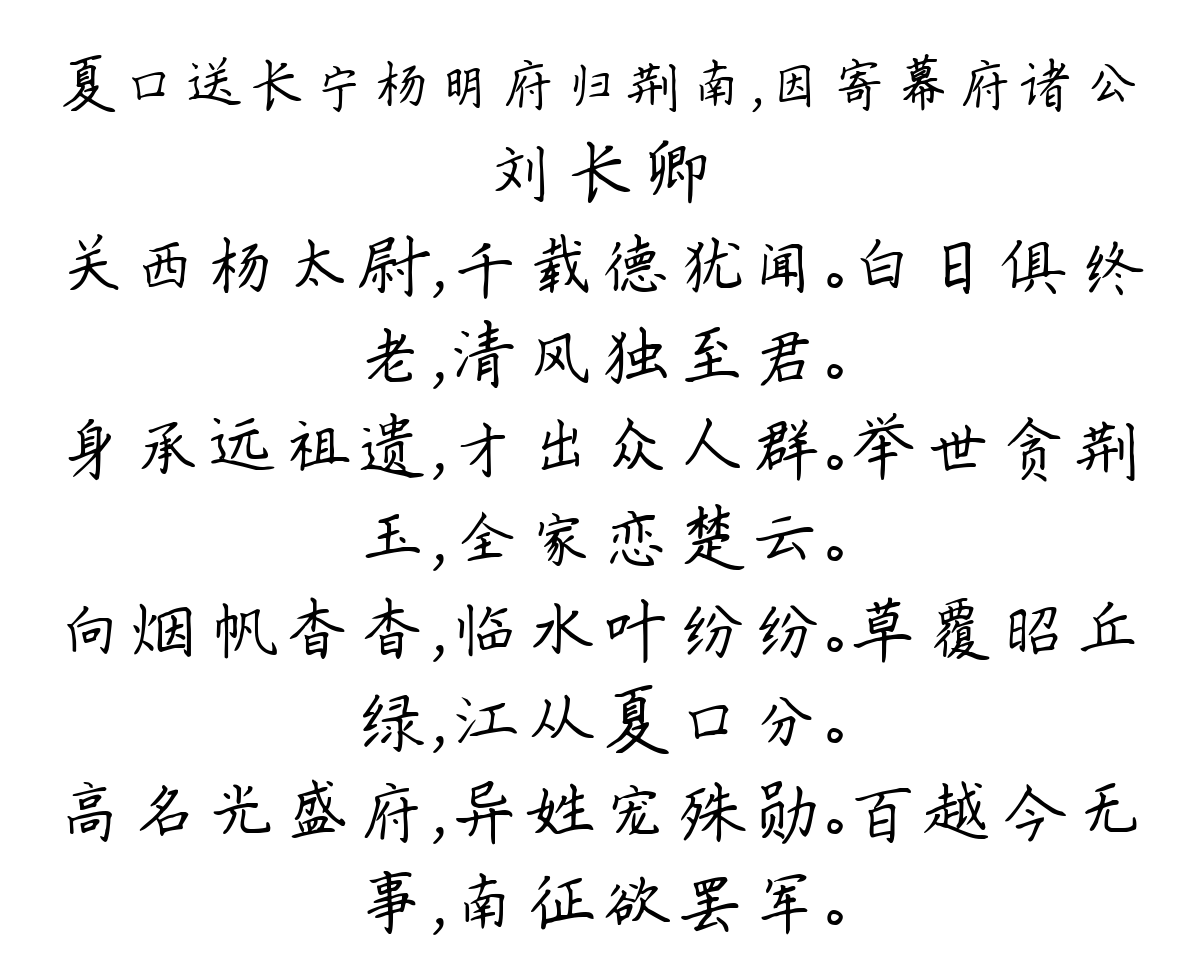 夏口送长宁杨明府归荆南,因寄幕府诸公
刘长卿
关西杨太尉,千载德犹闻。白日俱终
老,清风独至君。
身承远祖遗,才出众人群。举世贪荆
玉,全家恋楚云。
向烟帆杳杳,临水叶纷纷。草覆昭丘
绿,江从夏口分。
高名光盛府,异姓宠殊勋。百越今无
事,南征欲罢军。